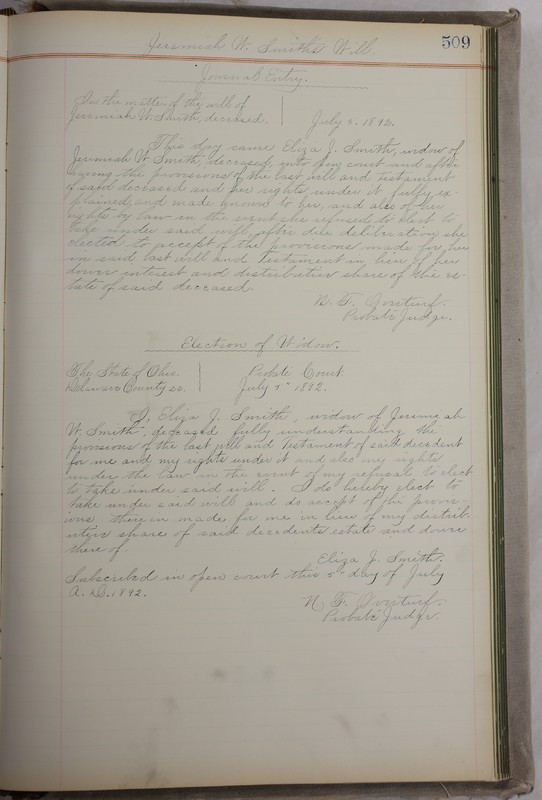 Jeremiah W. Smith's Will. 509
Journal Entry.
In the matter of the will of
Jeremiah W. Smith, deceased. July 5, 1892.
This day came Eliza J. Smith, widow of
Jeremiah W. Smith, deceased, into open court and after
having the provisions of the last will and testament
of said deceased and her rights under it fully ex-
plained and made known to her, and also of her
rights by law in the event she refused to elect to
take under said will, after due deliberation she
elected to accept of the provisions made for her
in said last will and Testament in lieu of her
dower interest and distributive share of the es-
tate of said deceased.
Probate Judge.
Election of Widow.
The State of Ohio. Probate Court
Delaware County ss. July 5" 1892.
I, Eliza J. Smith, widow of Jeremiah
W. Smith, deceased fully understanding the
provisions of the last will and Testament of said decedent
for me and my rights under it and also my rights
under the law in the event of my refusal to elect
to take under said will. I do hereby elect to
take under said will and to accept of the provis-
ions therein made for me in lieu of my distrib-
utive share of said decedents estate and dower
there of.
Eliza J. Smith.
Subscribed in open court this 5th day of July
A. D. 1892.
Probate Judge